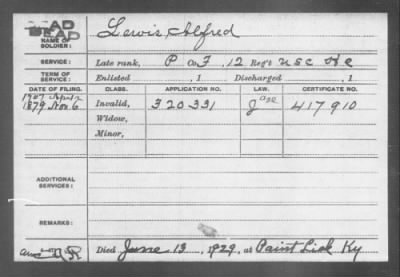 DEAD
DEAD
NAME OF SOLDIER: Lewis, Alfred
SERVICE: Late rank, P Co. F, 12 Reg't U S C H A
TERM OF SERVICE: Enlisted , 1 Discharged , 1
DATE OF FILING. CLASS. APPLICATION NO. LAW. CERTIFICATE NO.
1907 April
1879 Nov 6 Invalid, 320331 417910
Widow,
Minor,
ADDITIONAL SERVICES:
REMARKS:
Died June 13, 1929, at Paint Lick Ky